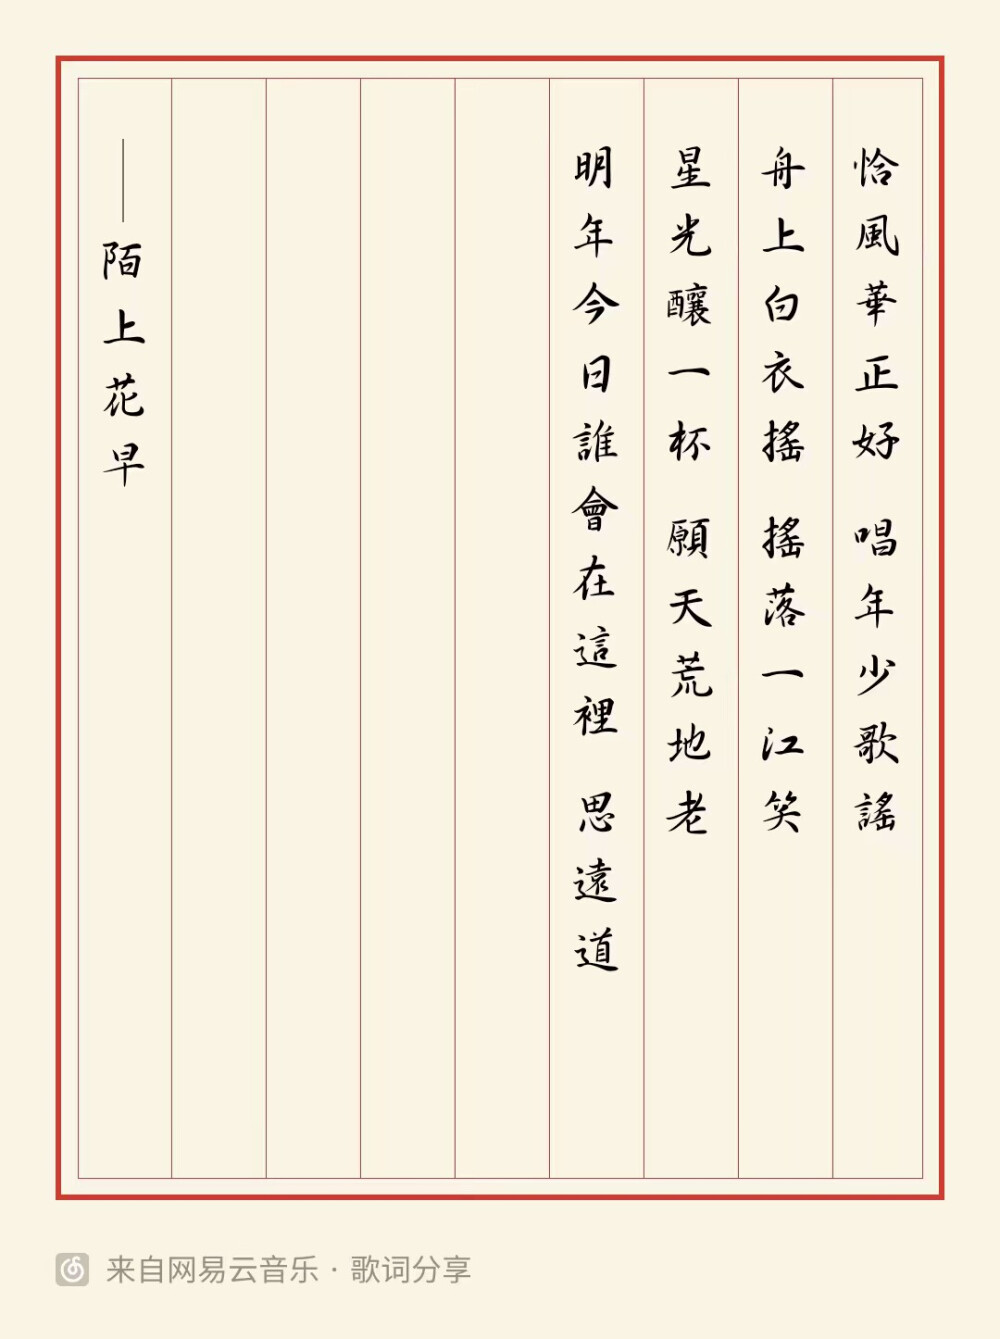 恰風華正好 唱年少歌謠
舟上白衣搖 搖落一江笑
星光釀一杯 願天荒地老
明年今日誰會在這裡 思遠道
——陌上花早
来自网易云音乐·歌词分享